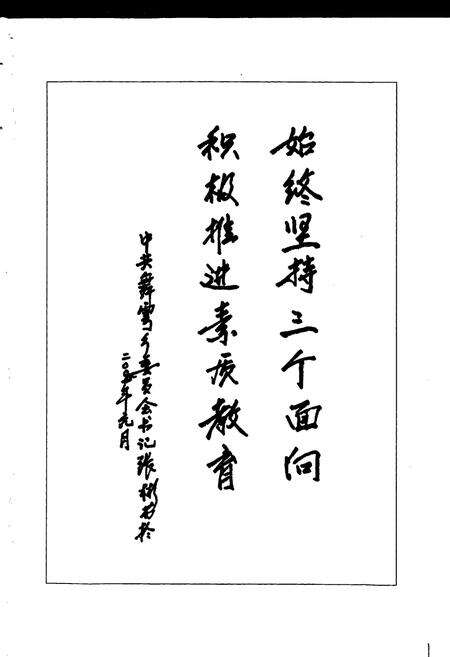 始终坚持三个面向
积极推进素质教育
中共舞雩乡委员会书记张彬
二〇〇五年元月